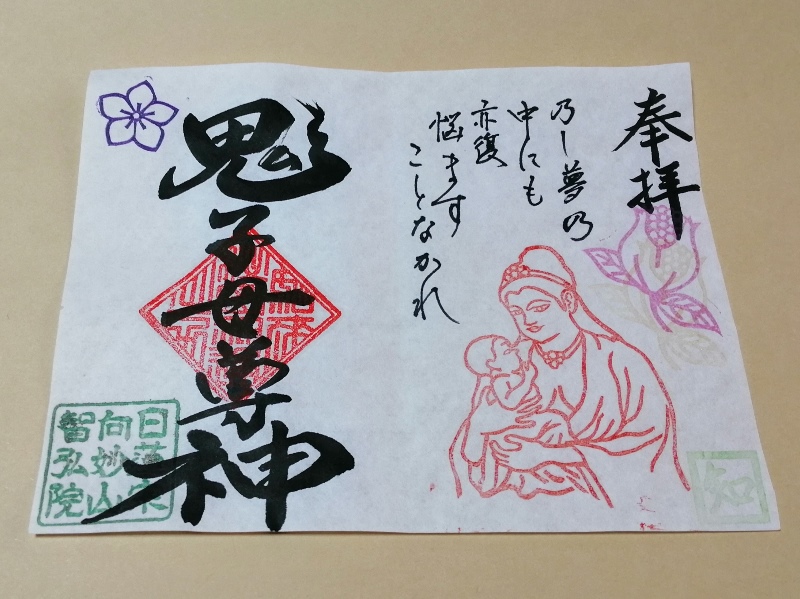 奉拝
乃し夢乃
中にも
亦復
悩ます
ことなかれ
鬼子母尊神
日蓮宗
向妙山
智弘院
知